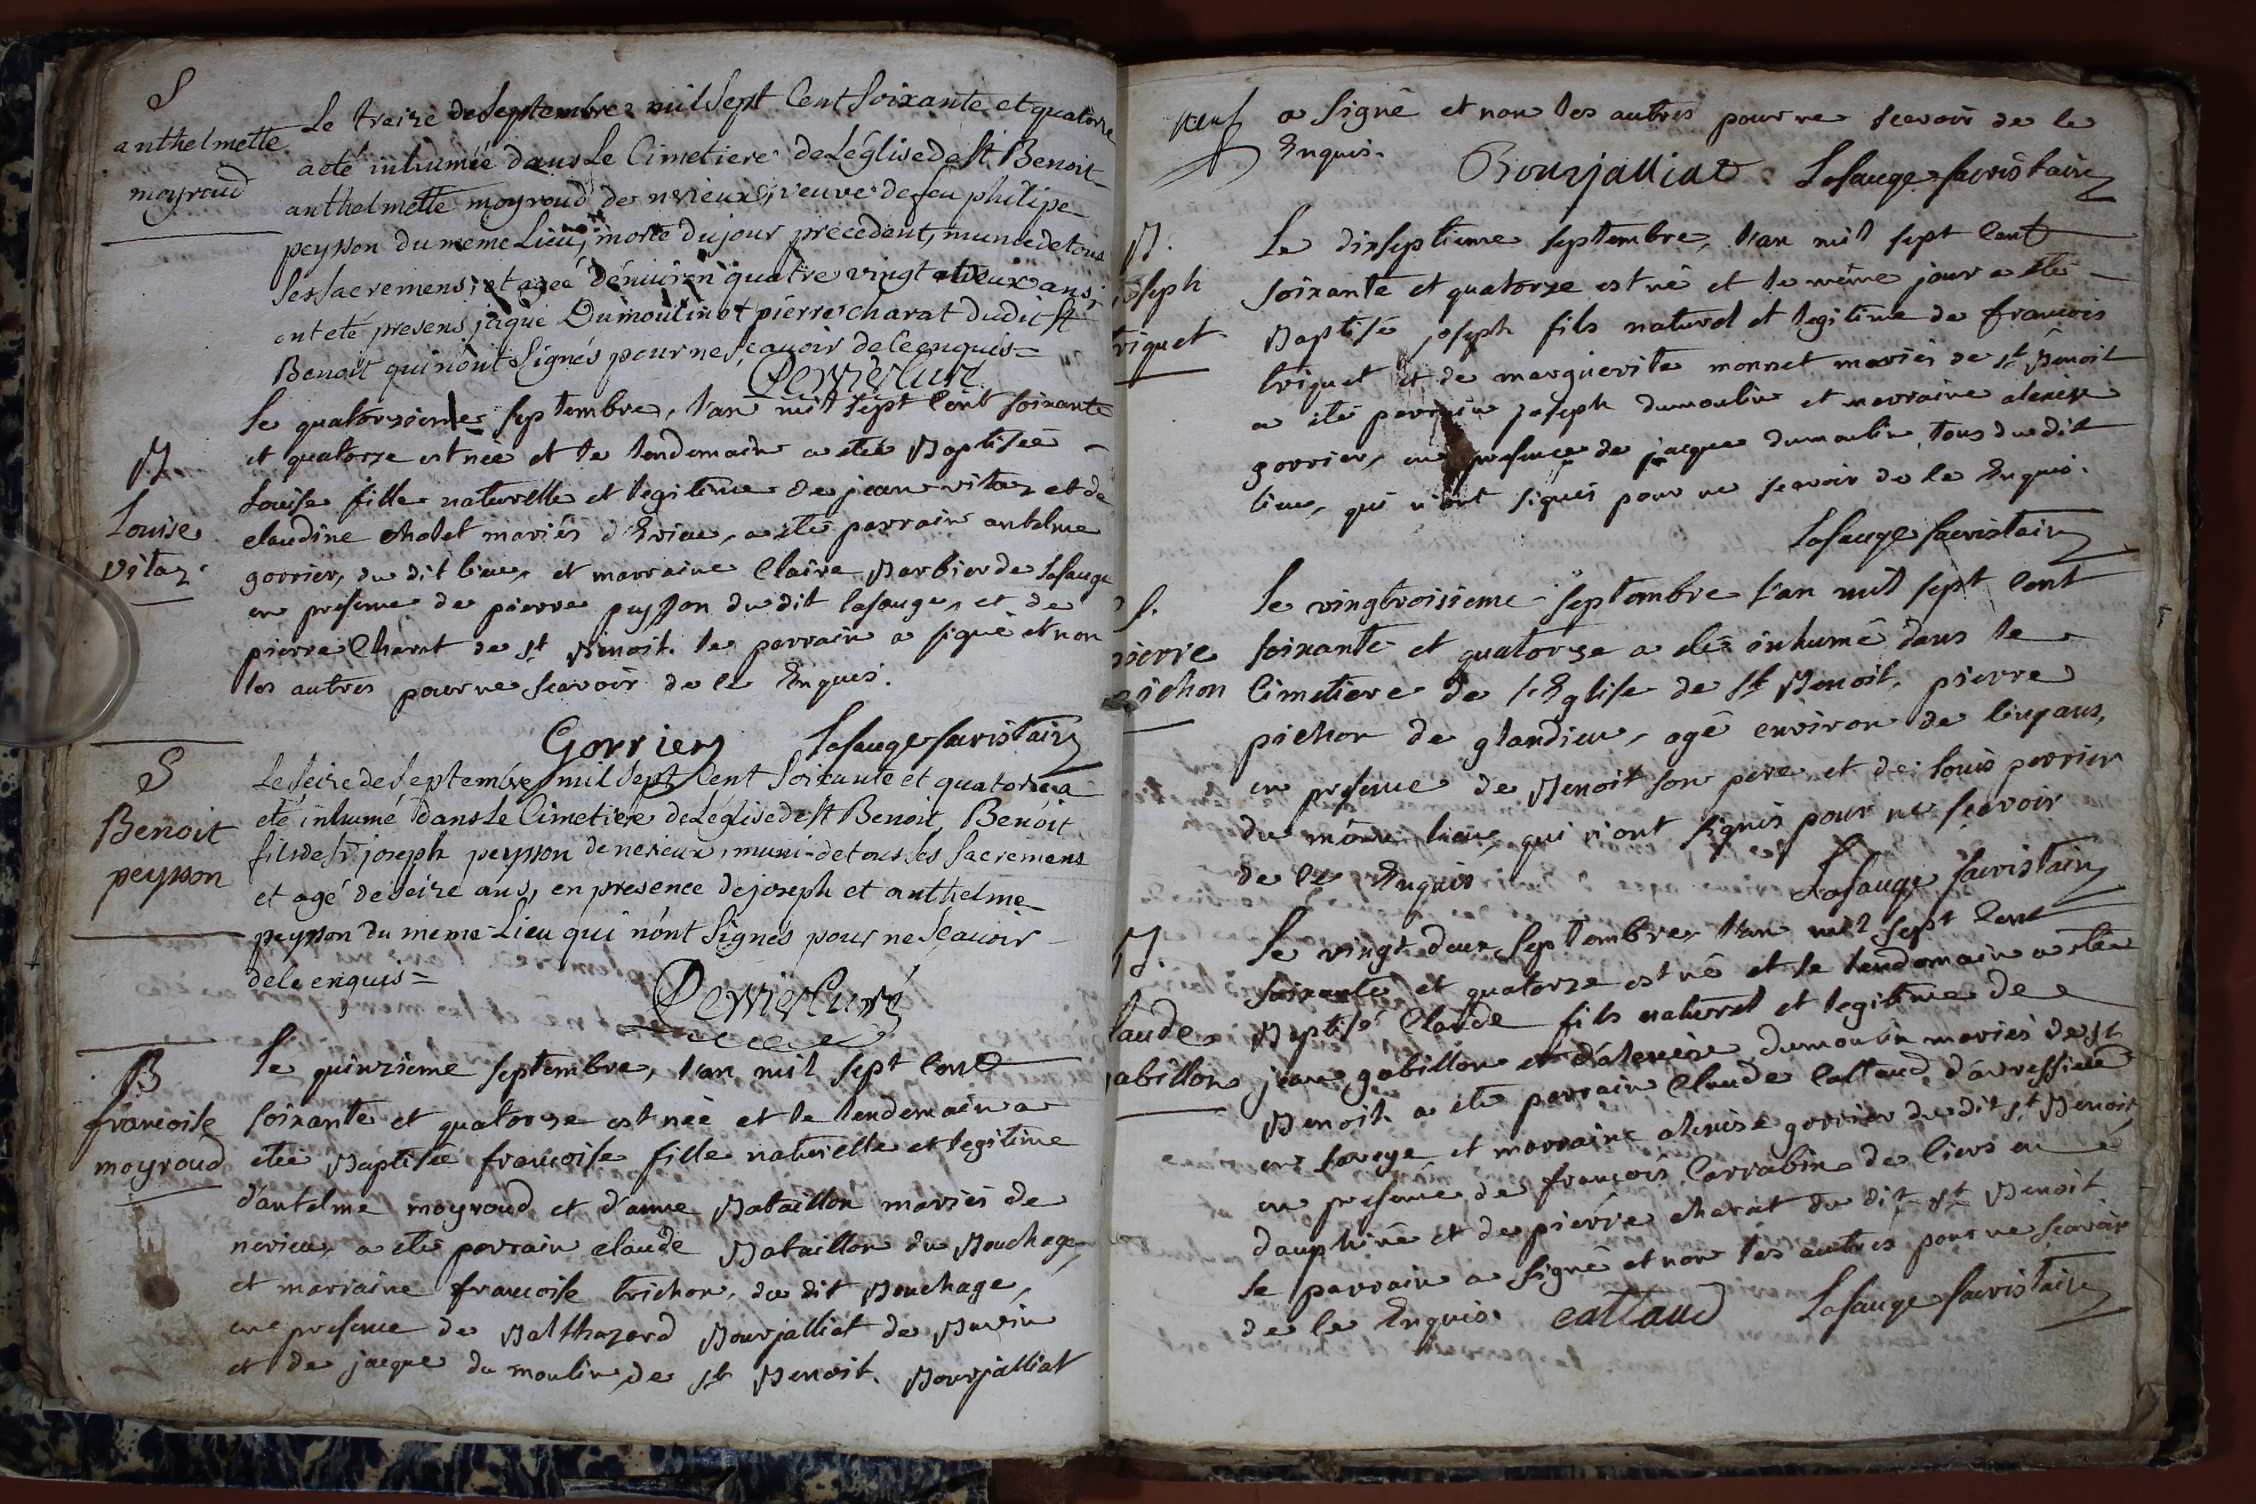 S
anthelmette
moyroud
Le treize de Septembre mil Sept Cent Soixante et quatorze
a eté inhumée dans Le Cimetiere de L'église de St Benoit
anthelmette moyroud de nerieux, veuve de feu philipe
peysson du meme Lieu, morte du jour précedent, munie de tous
Ses Sacremens, et ageé d'énuiron quatre vingt et deux ans,
ont eté presens jaque Dumoulin et pierre charat dudit St
Benoit qui n'ont Signés pour ne Sçauoir de ce enquis =
Perrier Curé
B
Louise
vitoz
Le quatorsieme septembre, l'an mil sept Cent soixante
et quatorze est neé et le lendemain a eteé Baptiseé
Louise fille naturelle et legitime de jean vitoz et de
claudine Cholet mariés d'Evieu, a ete parrain antelme
gorrier, du dit lieu, et marraine Claire Barbier de Lasauge
en presence de pierre peysson du dit lasauge, et de
pierre Charat de st Benoit. le parrain a signé et non
les autres pour ne scavoir de ce Enquis.
Gorrier Lasauge sacristain
S
Benoit
peysson
Le Seize de Septembre mil Sept Cent Soixante et quatorze a
eté inhumé dans Le Cimetiere de L'église de St Benoit, Benoit
fils de Sr joseph peysson de nerieux, muni de tous les Sacremens
et agé de Seize ans, en presence de joseph et anthelme
peysson du meme Lieu qui n'ont Signés pour ne Sçauoir
de ce enquis =
Perrier Curé
B
francoise
moyroud
Le quinzieme septembre, l'an mil sept Cent
soixante et quatorze est neé et le lendemain a
eteé Baptiseé francoise fille naturelle et legitime
d'antelme moyroud et d'anne Bataillon mariés de
nerieu, a ete parrain claude Bataillon du Bouchage,
et marraine francoise trichon, du dit Bouchage,
en presence de Balthazard Bourjalliat de Buvin
et de jacque du moulin de st Benoit. Bourjalliat
a signé et non les autres pour ne scavoir de ce
Enquis.
Bourjalliat Lasauge sacristain
B.
oseph
riquet
Le dixseptieme septembre, l'an mil sept Cent
soixante et quatorze est né et le même jour a ete
Baptisé joseph fils naturel et legitime de francois
triquet et de marguerite monnet mariés de st Benoit
a ete parrain joseph dumoulin et marraine alexise
gorrier, en presence de jacque dumoulin tous du dit
lieu, qui n'ont signés pour ne scavoir de ce Enquis.
Lasauge sacristain
S.
pierre
pichon
Le vingtroisieme septembre l'an mil sept Cent
soixante et quatorze a ete inhumé dans le
Cimetiere de l'Eglise de st Benoit, pierre
pichon de glandieu, agé environ de cinq ans,
en presence de Benoit son pere et de louis perrier
du même lieu, qui n'ont signés pour ne scavoir
de ce Enquis Lasauge sacristain
B.
laude
abillon
Le vingt deux septembre l'an mil sept Cent
soixante et quatorze est né et le lendemain a ete
Baptisé Claude fils naturel et legitime de
jean gabillon et d'alexise dumoulin mariés de st
Benoit a ete parrain Claude Cattaud d'avressieux
en savoye et marraine alexise gorrier du dit st Benoit
en presence de francois Carrabin de Ciers en
dauphiné et de pierre charat du dit st Benoit
le parrain a signé et non les autres pour ne scavoir
de ce Enquis. cattaud Lasauge sacristain